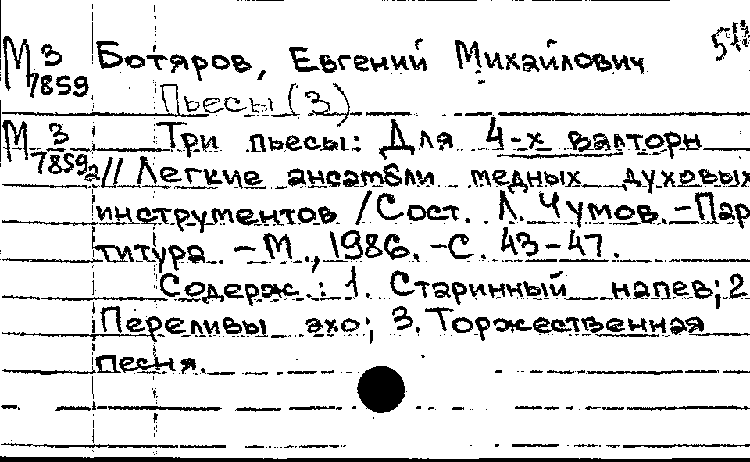 М 3 Ботяров, Евгений Михайлович
7859 Пьесы (3)
М 3 Три пьесы: Для 4-х валторн
7859 2 // Легкие ансамбли медных духовых
инструментов / Сост. Л. Чумов. – Пар
титура. – М., 1986. – С. 43–47.
Содерж.: 1. Старинный напев; 2
Переливы эхо; 3. Торжественная
песня.